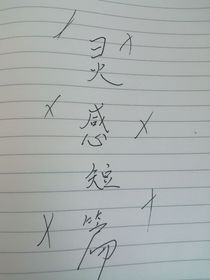 灵感短篇